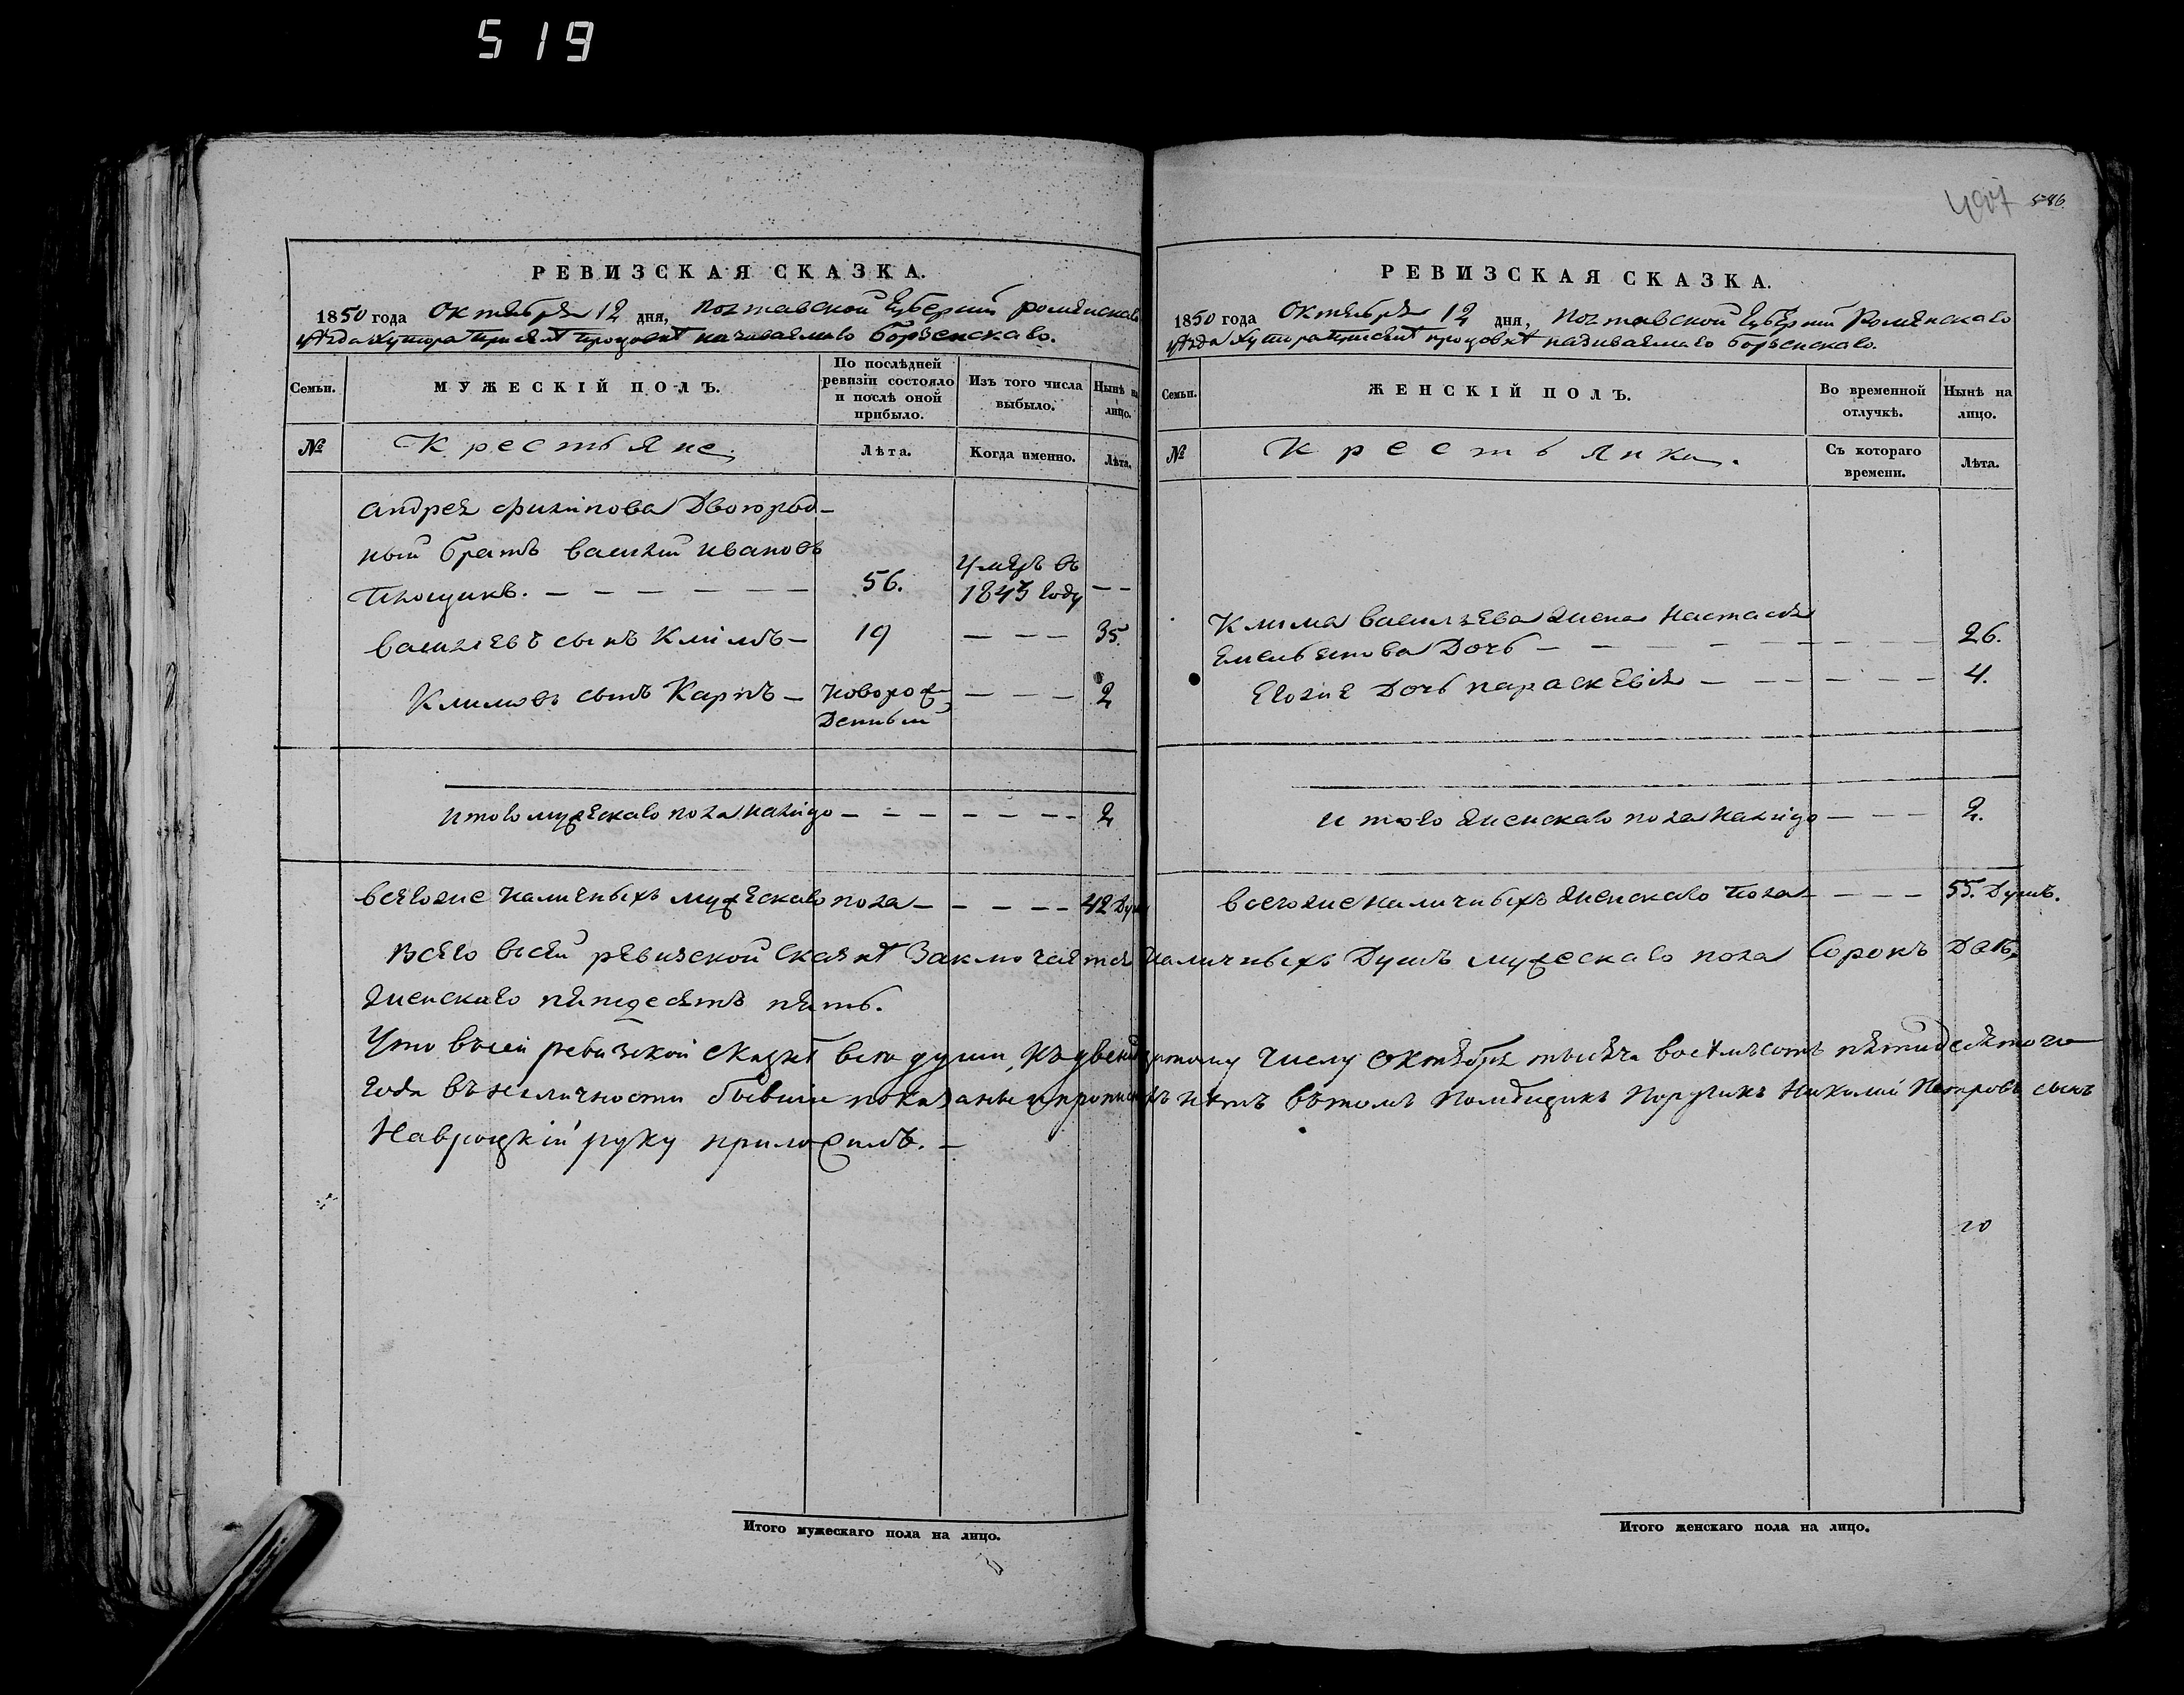 519
497 586
РЕВИЗСКАЯ СКАЗКА.
1850 года Октября 12 дня, Полтавской Губерніи роменскаго
уѣзда Хутора при называемаго борзенскаго.
Семьи. МУЖЕСКІЙ ПОЛЪ. По послѣдней ревизіи состояло и послѣ оной прибыло. Изъ того числа выбыло. Нынѣ на лицо.
№ Крестьяне. Лѣта. Когда именно. Лѣта.
андрея филипова Двоюрод-
ный братъ василій ивановъ
56. умеръ въ 1843 году — —
васильевъ сынъ Климъ — 19 — — — 35.
Климовъ сынъ Карпъ — новорож денный — — — 2
итого мужескаго пола налицо — — — — — — — 2
всегоже наличныхъ мужескаго пола — — — — — 42 Душ
РЕВИЗСКАЯ СКАЗКА.
1850 года Октября 12 дня, Полтавской губерніи Роменскаго
уѣзда Хутора при называемаго борзенскаго.
Семьи. ЖЕНСКІЙ ПОЛЪ. Во временной отлучкѣ. Нынѣ на лицо.
№ Крестьянки. Съ котораго времени. Лѣта.
Клима васильева жена Настасія
Емельянова Дочь — — — — — — — 26.
Егоже Дочь параскевія — — — — — — 4.
и того женскаго пола налицо — — — 2.
всегоже наличныхъ женскаго пола — — — 55. Душъ.
Всего всей ревизской сказкѣ Заключается наличныхъ Душъ мужескаго пола Сорокъ Двѣ,
женскаго пятдесятъ пять.
Что въсей ревизской сказкѣ всѣ души, къ двенадцатому числу октября тысяча восемьсотъ пятидесятого
года въ наличности бывшіе показаны и прописныхъ нѣтъ вътомъ Помѣщикъ Поручикъ Николай Петровъ сынъ
Навроцкій руку приложилъ. —
20
Итого мужескаго пола на лицо.
Итого женскаго пола на лицо.